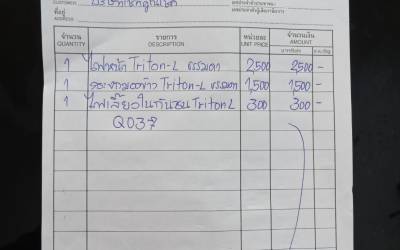 CUSTOMER
ที่อยู่
ADDRESS
จำนวน รายการ หน่วยละ จำนวนเงิน
QUANTITY DESCRIPTION UNIT PRICE AMOUNT
1 ไฟหน้า Triton-L ธรรมดา 2,500 2,500 -
1 กระจกมองข้าง Triton-L ธรรมดา 1,500 1,500 -
1 ไฟเลี้ยวในกันชน Triton-L 300 300 -
Q037